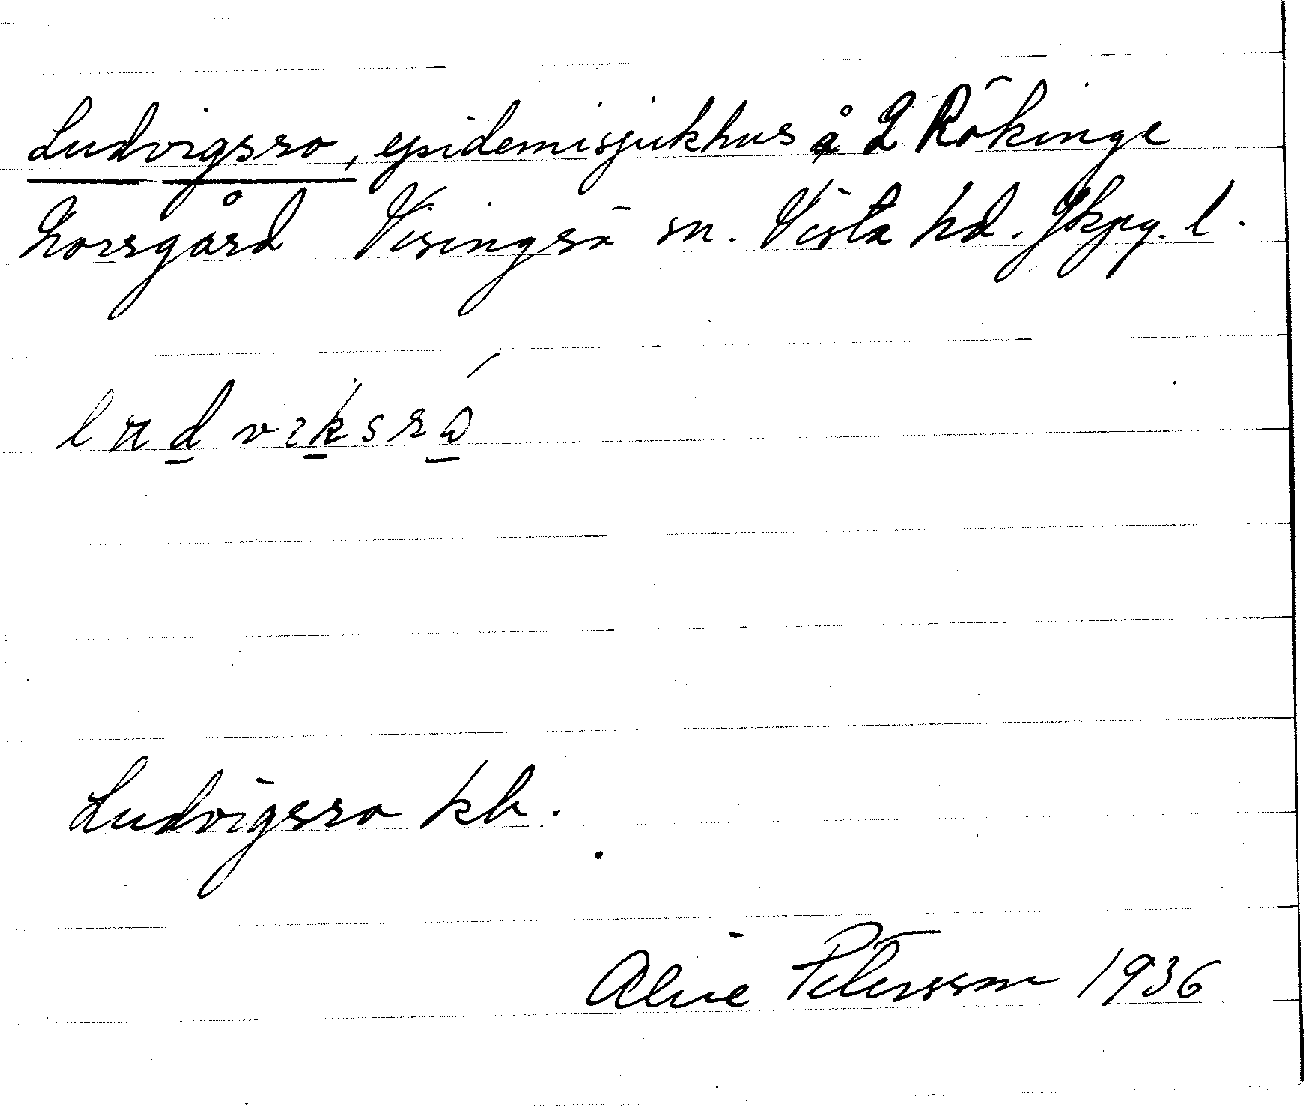 Ludvigsro, epidemisjukhus å 2 Rökinge
Korsgård Visingsö sn. Vista hd. Jkpg. l.
ludviksró
Ludvigsro kb.
Petersson 1936